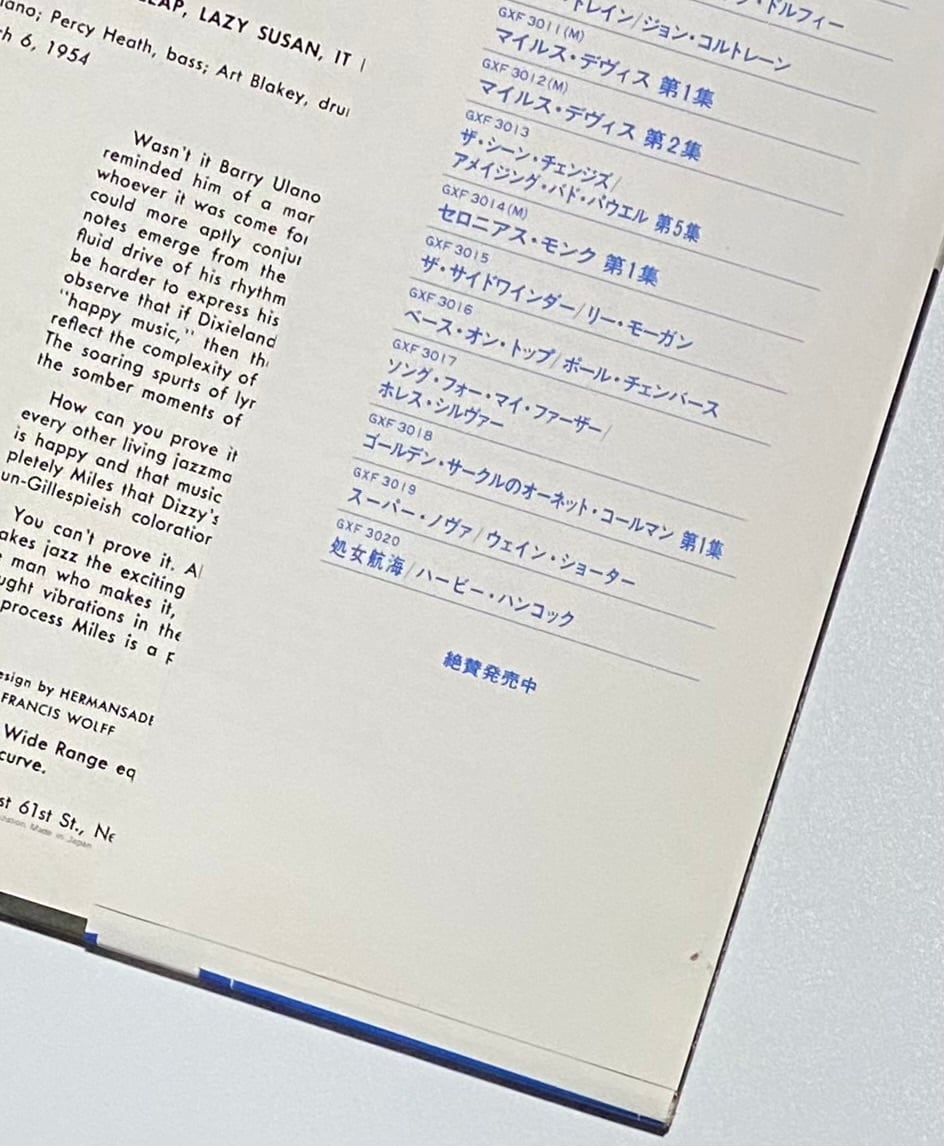 LAP, LAZY SUSAN, IT
ano; Percy Heath, bass; Art Blakey, dru
ch 6, 1954
Wasn't it Barry Ulano
reminded him of a mar
whoever it was come for
could more aptly conjur
notes emerge from the
fluid drive of his rhythm
be harder to express his
observe that if Dixieland
"happy music," then th
reflect the complexity of
The soaring spurts of lyr
the somber moments of
How can you prove it
every other living jazzma
is happy and that music
pletely Miles that Dizzy's
un-Gillespieish coloratior
You can't prove it. A
akes jazz the exciting
man who makes it,
ught vibrations in the
process Miles is a
esign by HERMANSADE
FRANCIS WOLFF
Wide Range eq
curve.
st 61st St., Ne
Made in Japan
・ドルフィー
トレイン/ジョン・コルトレーン
GXF 3011(M)
マイルス・デヴィス 第1集
GXF 3012(M)
マイルス・デヴィス 第2集
GXF 3013
ザ・シーン・チェンジズ/
アメイジング・バド・パウエル 第5集
GXF 3014(M)
セロニアス・モンク 第1集
GXF 3015
ザ・サイドワインダー/リー・モーガン
GXF 3016
ベース・オン・トップ/ポール・チェンバース
GXF 3017
ソング・フォー・マイ・ファーザー/
ホレス・シルヴァー
GXF 3018
ゴールデン・サークルのオーネット・コールマン 第1集
GXF 3019
スーパー・ノヴァ/ウェイン・ショーター
GXF 3020
処女航海/ハービー・ハンコック
絶賛発売中